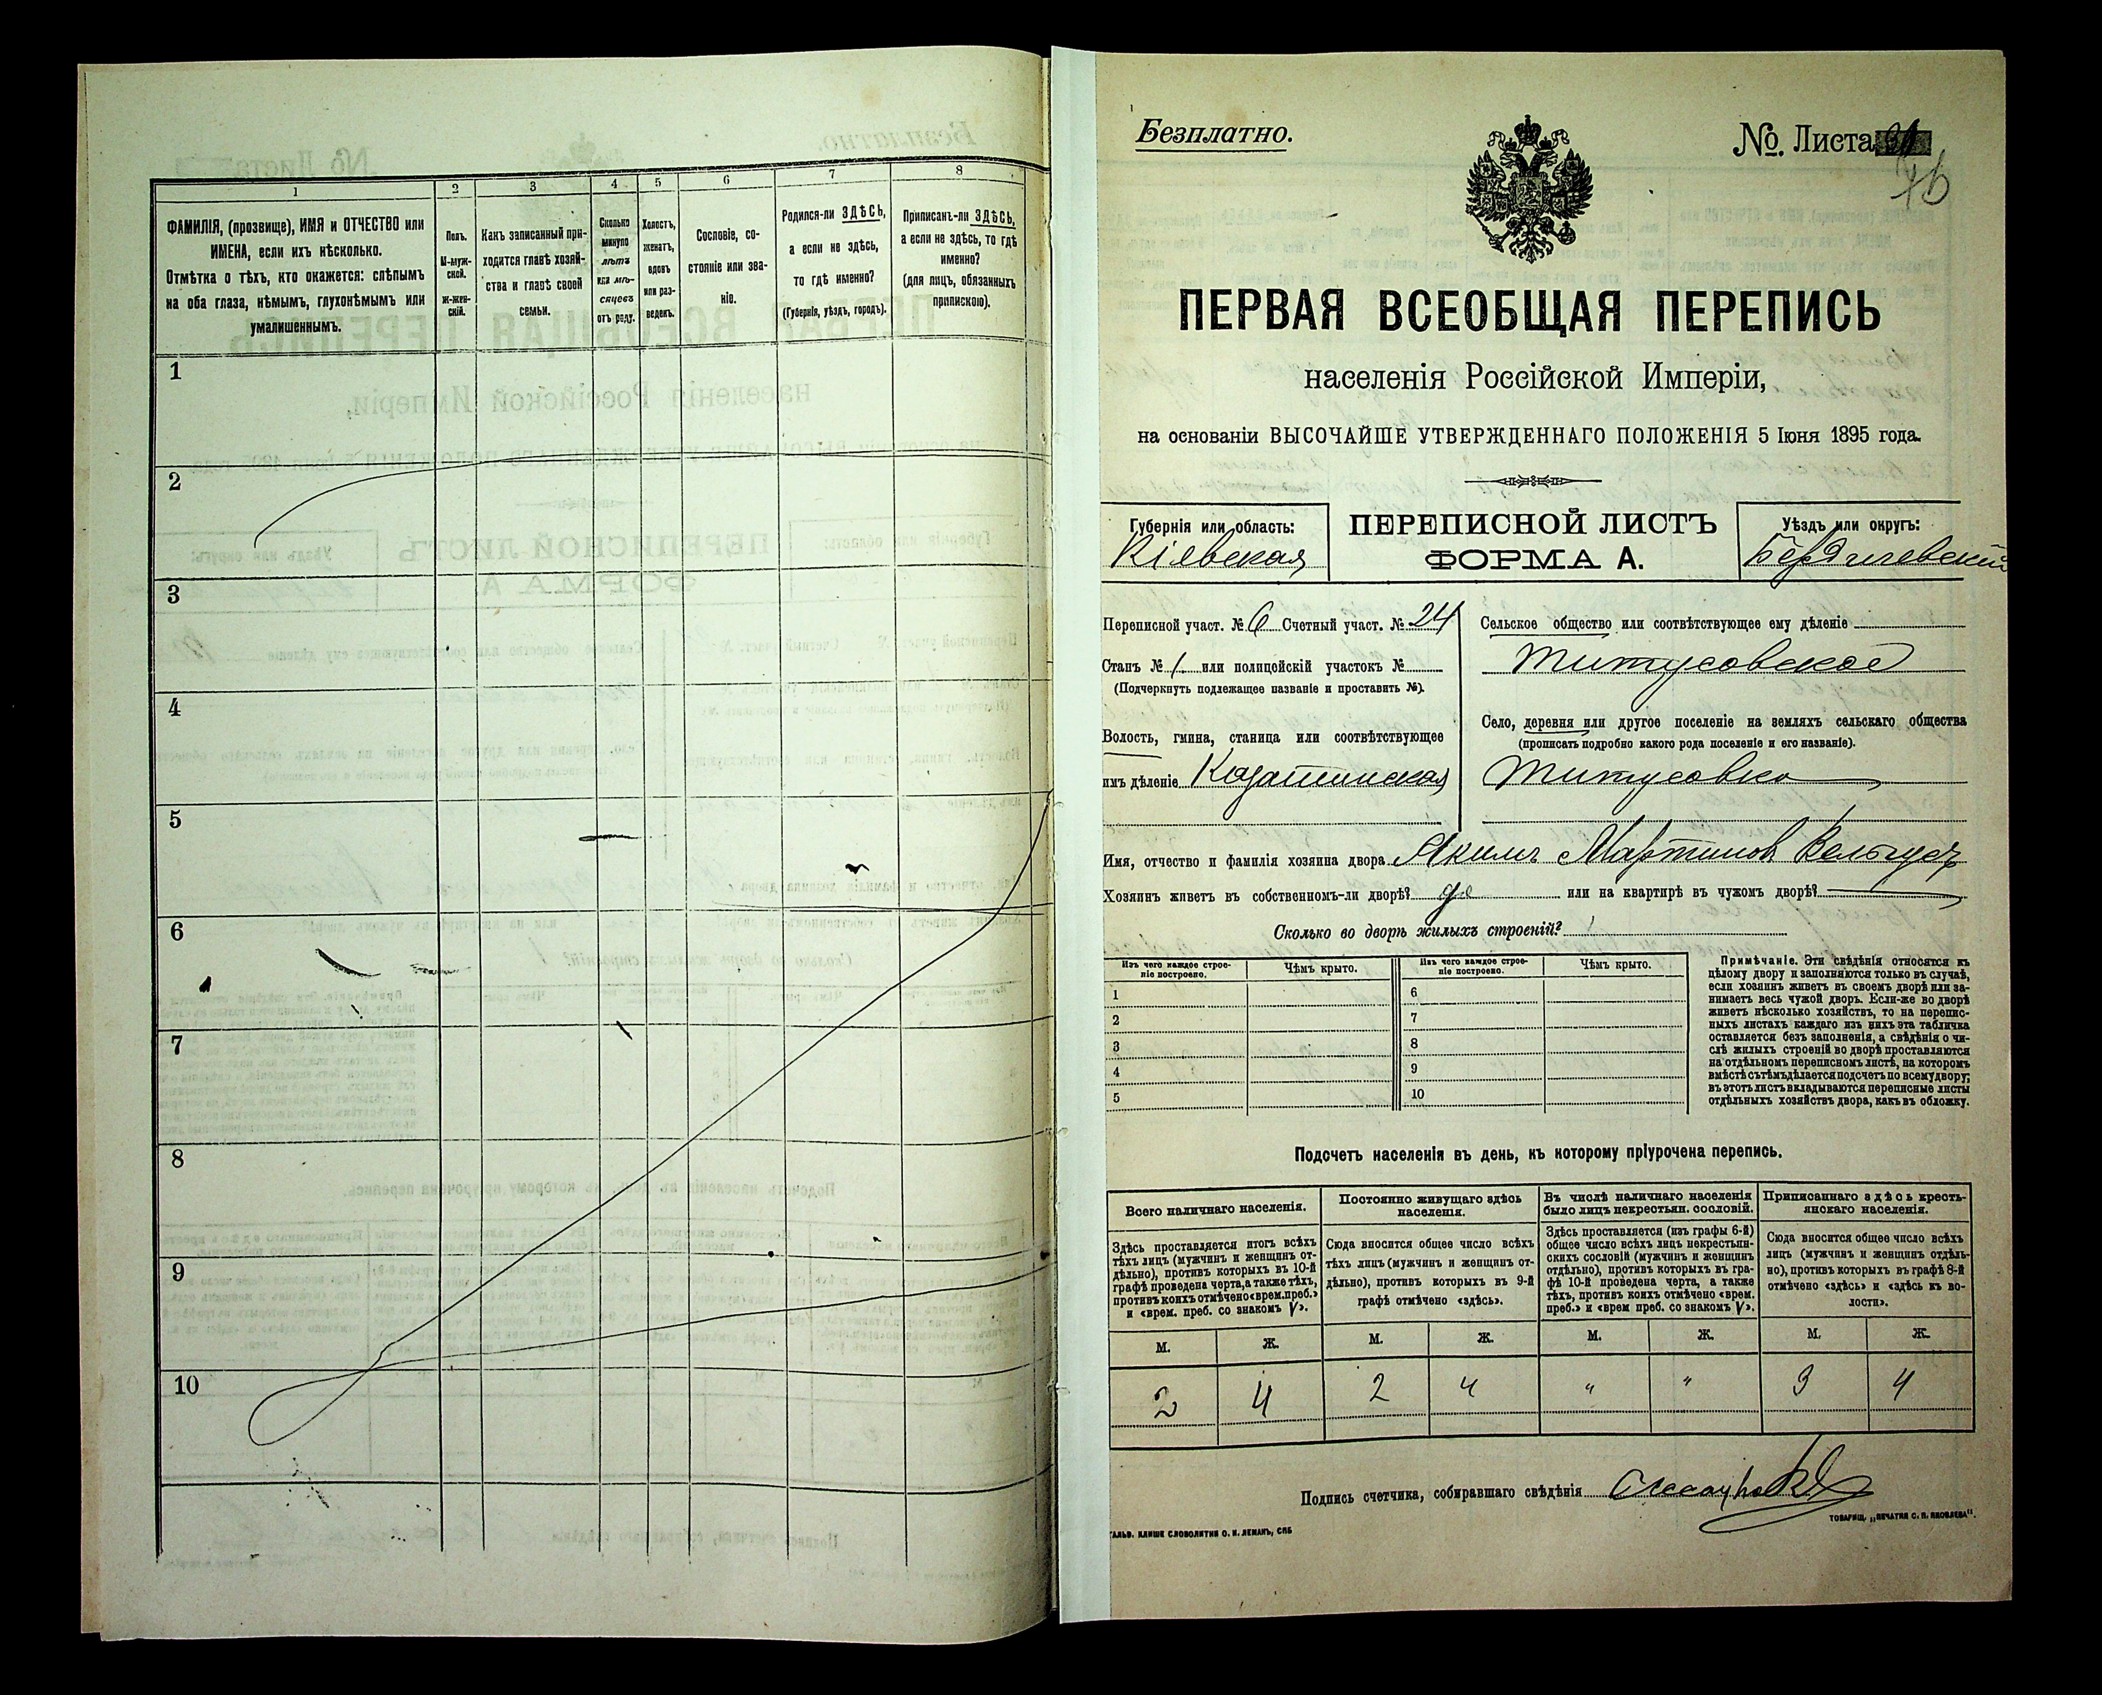 1
2
3
4
5
6
7
8
ФАМИЛІЯ, (прозвище), ИМЯ и ОТЧЕСТВО или
ИМЕНА, если ихъ нѣсколько.
Отмѣтка о тѣхъ, кто окажется: слѣпымъ
на оба глаза, нѣмымъ, глухонѣмымъ или
умалишеннымъ.
Полъ.
М-муж-
ской.
Ж-жен-
скій.
Какъ записанный при-
ходится главѣ хозяй-
ства и главѣ своей
семьи.
Сколько
минуло
лѣтъ
или мѣ-
сяцевъ
отъ роду.
Холостъ,
женатъ,
вдовъ
или раз-
веденъ.
Сословіе, со-
стояніе или зва-
ніе.
Родился-ли ЗДѢСЬ,
а если не здѣсь,
то гдѣ именно?
(Губернія, уѣздъ, городъ).
Приписанъ-ли ЗДѢСЬ,
а если не здѣсь, то гдѣ
именно?
(для лицъ, обязанныхъ
припискою).
1
2
3
4
5
6
7
8
9
10
Безплатно.
№ Листа
ПЕРВАЯ ВСЕОБЩАЯ ПЕРЕПИСЬ
населенія Россійской Имперіи,
на основаніи ВЫСОЧАЙШЕ УТВЕРЖДЕННАГО ПОЛОЖЕНІЯ 5 Іюня 1895 года.
Губернія или область:
Кіевская
ПЕРЕПИСНОЙ ЛИСТЪ
ФОРМА А.
Уѣздъ или округъ:
Бердичевскій
Переписной участ. № 6 Счетный участ. № 24
Станъ № 1 или полицейскій участокъ №
(Подчеркнуть подлежащее названіе и проставить №).
Волость, гмина, станица или соотвѣтствующее
имъ дѣленіе Казатинская
Сельское общество или соотвѣтствующее ему дѣленіе
Титусовское
Село, деревня или другое поселеніе на земляхъ сельскаго общества
(прописать подробно какого рода поселеніе и его названіе).
Титусовка
Имя, отчество и фамилія хозяина двора Якимъ Мартинов
Хозяинъ живетъ въ собственномъ-ли дворѣ? да или на квартирѣ въ чужомъ дворѣ?
Сколько во дворѣ жилыхъ строеній? 1
Изъ чего каждое строе-
ніе построено.
Чѣмъ крыто.
Изъ чего каждое строе-
ніе построено.
Чѣмъ крыто.
1
2
3
4
5
6
7
8
9
10
Примѣчаніе. Эти свѣдѣнія относятся къ
цѣлому двору и заполняются только въ случаѣ,
если хозяинъ живетъ въ своемъ дворѣ или за-
нимаетъ весь чужой дворъ. Если-же во дворѣ
живетъ нѣсколько хозяйствъ, то на перепис-
ныхъ листахъ каждаго изъ нихъ эта табличка
оставляется безъ заполненія, а свѣдѣнія о чи-
слѣ жилыхъ строеній во дворѣ проставляются
на отдѣльномъ переписномъ листѣ, на которомъ
вмѣстѣ съ тѣмъ дѣлается подсчетъ по всему двору;
въ этотъ листъ вкладываются переписные листы
отдѣльныхъ хозяйствъ двора, какъ въ обложку.
Подсчетъ населенія въ день, къ которому пріурочена перепись.
Всего наличнаго населенія.
Здѣсь проставляется итогъ всѣхъ
тѣхъ лицъ (мужчинъ и женщинъ от-
дѣльно), противъ которыхъ въ 10-й
графѣ проведена черта, а также тѣхъ,
противъ коихъ отмѣчено «врем. преб.»
и «врем. преб. со знакомъ V».
Постоянно живущаго здѣсь
населенія.
Сюда вносится общее число всѣхъ
тѣхъ лицъ (мужчинъ и женщинъ от-
дѣльно), противъ которыхъ въ 9-й
графѣ отмѣчено «здѣсь».
Въ числѣ наличнаго населенія
было лицъ некрестьян. сословій.
Здѣсь проставляется (изъ графы 6-й)
общее число всѣхъ лицъ некрестьян-
скихъ сословій (мужчинъ и женщинъ
отдѣльно), противъ которыхъ въ гра-
фѣ 10-й проведена черта, а также
тѣхъ, противъ коихъ отмѣчено «врем.
преб.» и «врем преб. со знакомъ V».
Приписаннаго здѣсь кресть-
янскаго населенія.
Сюда вносится общее число всѣхъ
лицъ (мужчинъ и женщинъ отдѣль-
но), противъ которыхъ въ графѣ 8-й
отмѣчено «здѣсь» и «здѣсь къ во-
лости».
М. Ж. М. Ж. М. Ж. М. Ж.
2 4 2 4 " " 3 4
Подпись счетчика, собиравшаго свѣдѣнія
ГАЛЬВ. КЛИШЕ СЛОВОЛИТНИ О. И. ЛЕМАНЪ, СПБ
ТОВАРИЩ. „ПЕЧАТНЯ С. П. ЯКОВЛЕВА".